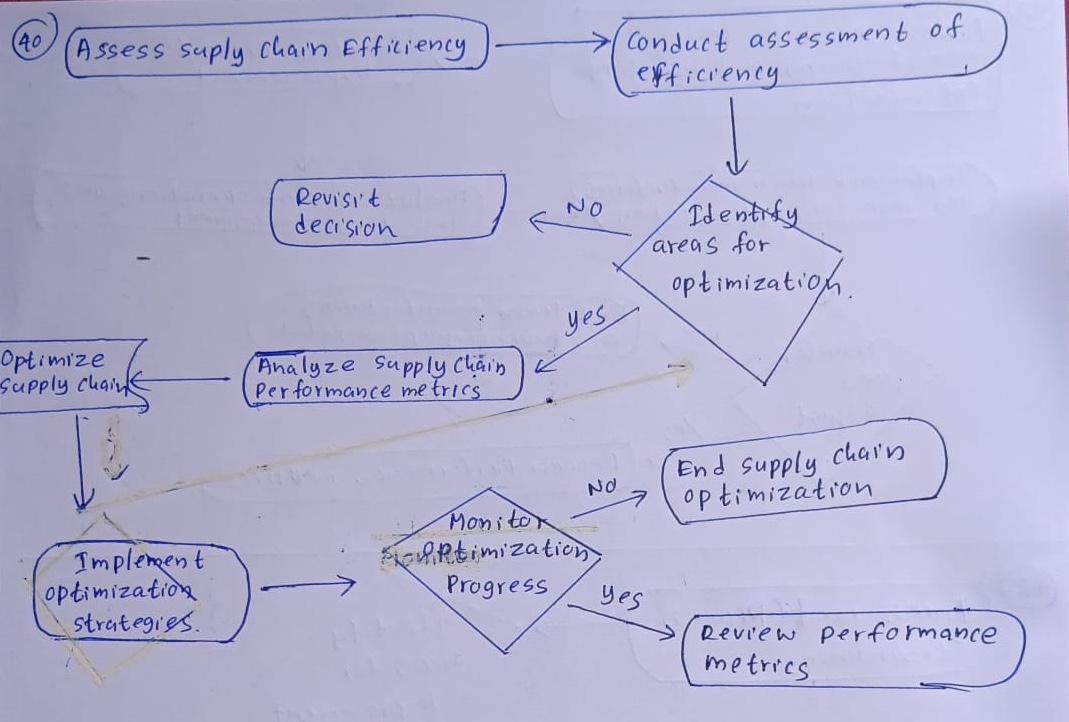 40
Assess suply chain Efficiency
Conduct assessment of
efficiency
Identify
areas for
optimization.
NO
Revisit
decision
yes
Analyze supply chain
performance metrics
Optimize
supply chain
Implement
optimization
strategies.
Monitor
optimization
Progress
NO
End supply chain
optimization
yes
Review performance
metrics